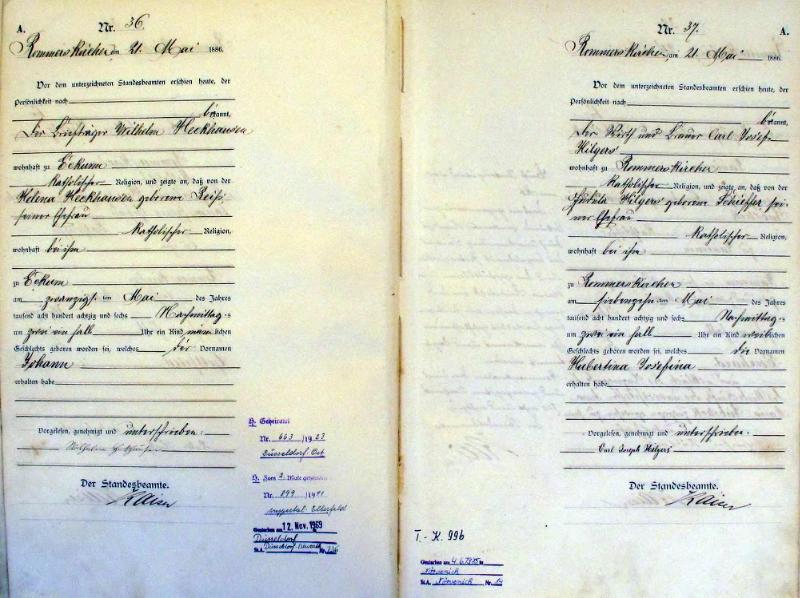 A. Nr. 36.
Rommerskirchen am 21. Mai 1886.
Vor dem unterzeichneten Standesbeamten erschien heute, der
Persönlichkeit nach
bekannt,
Der Briefträger Wilhelm Heckhausen
wohnhaft zu Eckum
Katholischer Religion, und zeigte an, daß von der
Helena Heckhausen geborene Reiss,
seiner Ehefrau
Katholischer Religion,
wohnhaft bei ihm
zu Eckum
am zwanzigst. ten Mai des Jahres
tausend acht hundert achtzig und sechs Nachmittags
um zwei ein halb Uhr ein Kind männlichen
Geschlechts geboren worden sei, welches die Vornamen
Johann
erhalten habe
Vorgelesen, genehmigt und unterschrieben.
Wilhelm Heckhausen
Der Standesbeamte.
Kaiser
H. Geheiratet
Nr. 663 /1923
Düsseldorf-Ost
H. Zum 2. Male geheiratet
Nr. 899 /1941
Wuppertal Elberfeld
Gestorben am 12. Nov. 1969
Düsseldorf
St.A. Düsseldorf Nr.
Nr. 37. A.
Rommerskirchen am 21. Mai 1886.
Vor dem unterzeichneten Standesbeamten erschien heute, der
Persönlichkeit nach
bekannt,
Der Wirth und Brauer Carl Josef
Hilgers
wohnhaft zu Rommerskirchen
Katholischer Religion, und zeigte an, daß von der
Hilgers geborene Schieffer sei-
ner Ehefrau
Katholischer Religion,
wohnhaft bei ihm
zu Rommerskirchen
am siebenzehn ten Mai des Jahres
tausend acht hundert achtzig und sechs Nachmittags
um zwei ein halb Uhr ein Kind weiblichen
Geschlechts geboren worden sei, welches die Vornamen
Hubertina Josefina
erhalten habe
Vorgelesen, genehmigt und unterschrieben.
Carl Joseph Hilgers
Der Standesbeamte.
Kaiser
T.-K. 996
Gestorben am 4.6.1975 in
Nörvenich
St.A. Nörvenich Nr. 14